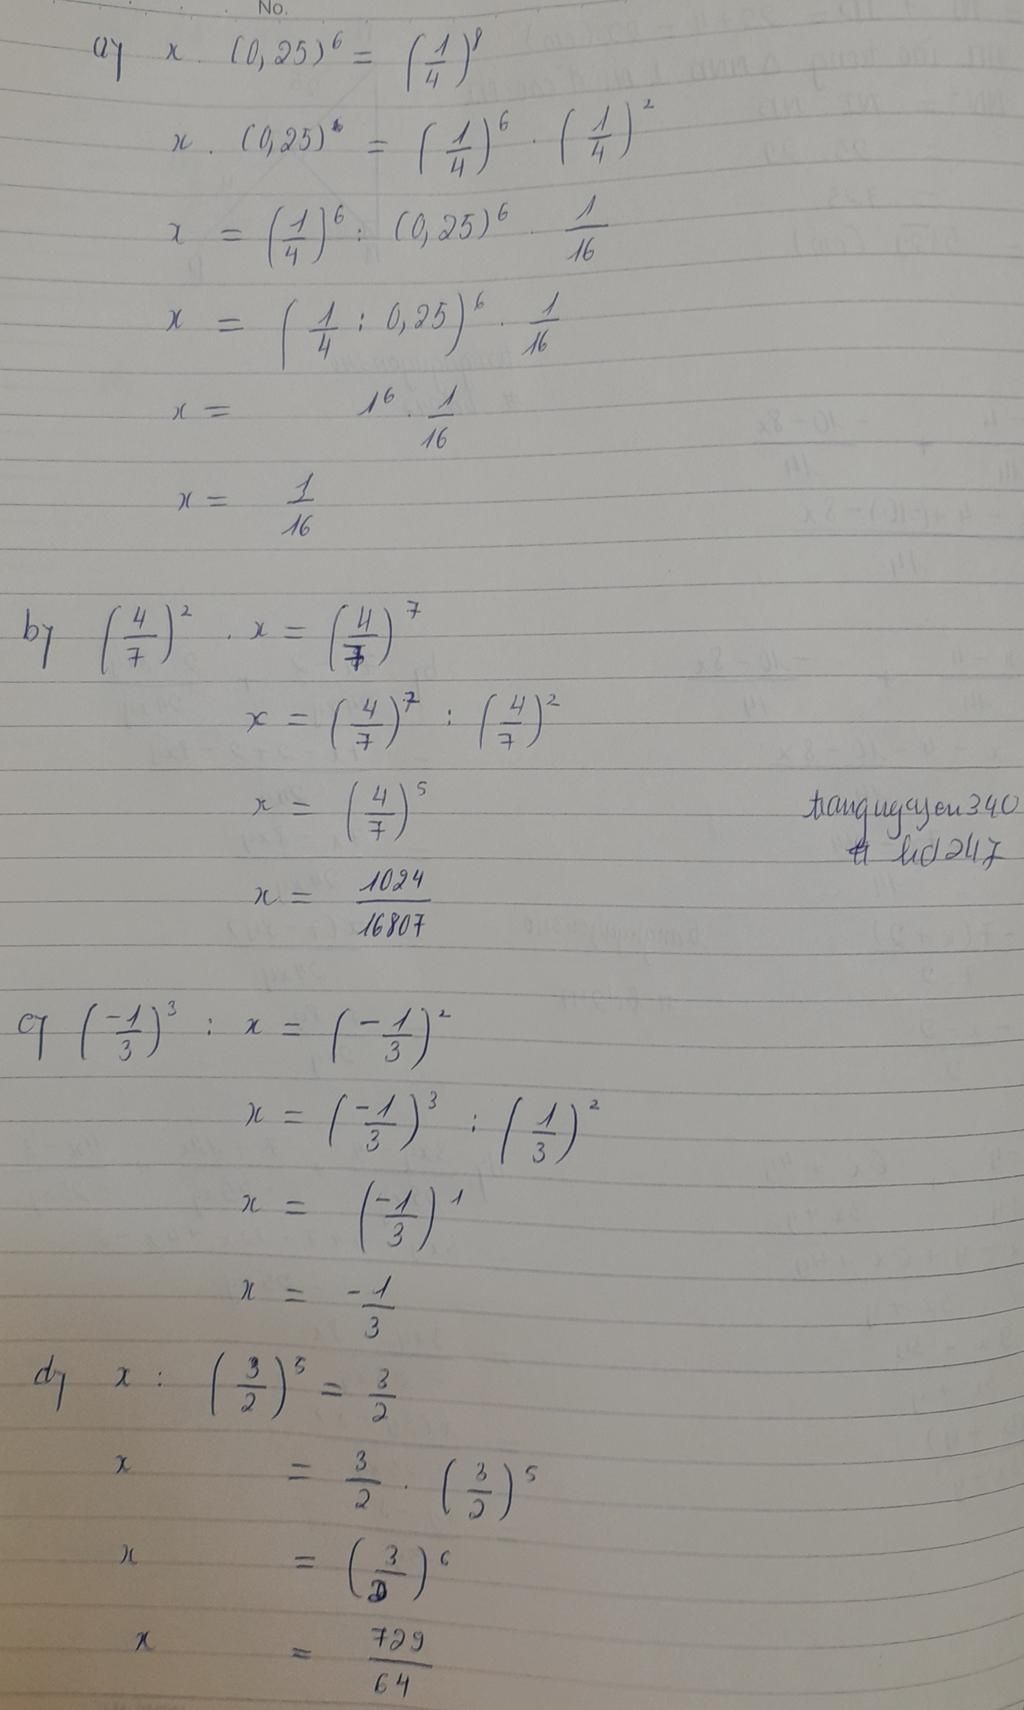 No.
a) x . (0,25)^6 = (1/4)^8
x . (0,25)^6 = (1/4)^6 . (1/4)^2
x = (1/4)^6 : (0,25)^6 . 1/16
x = (1/4 : 0,25)^6 . 1/16
x = 1^6 . 1/16
x = 1/16
b) (4/7)^2 . x = (4/7)^7
x = (4/7)^7 : (4/7)^2
x = (4/7)^5
x = 1024/16807
tranguyen340
# hd247
c) (-1/3)^3 : x = (-1/3)^2
x = (-1/3)^3 : (1/3)^2
x = (-1/3)^1
x = -1/3
d) x : (3/2)^5 = 3/2
x = 3/2 . (3/2)^5
x = (3/2)^6
x = 729/64